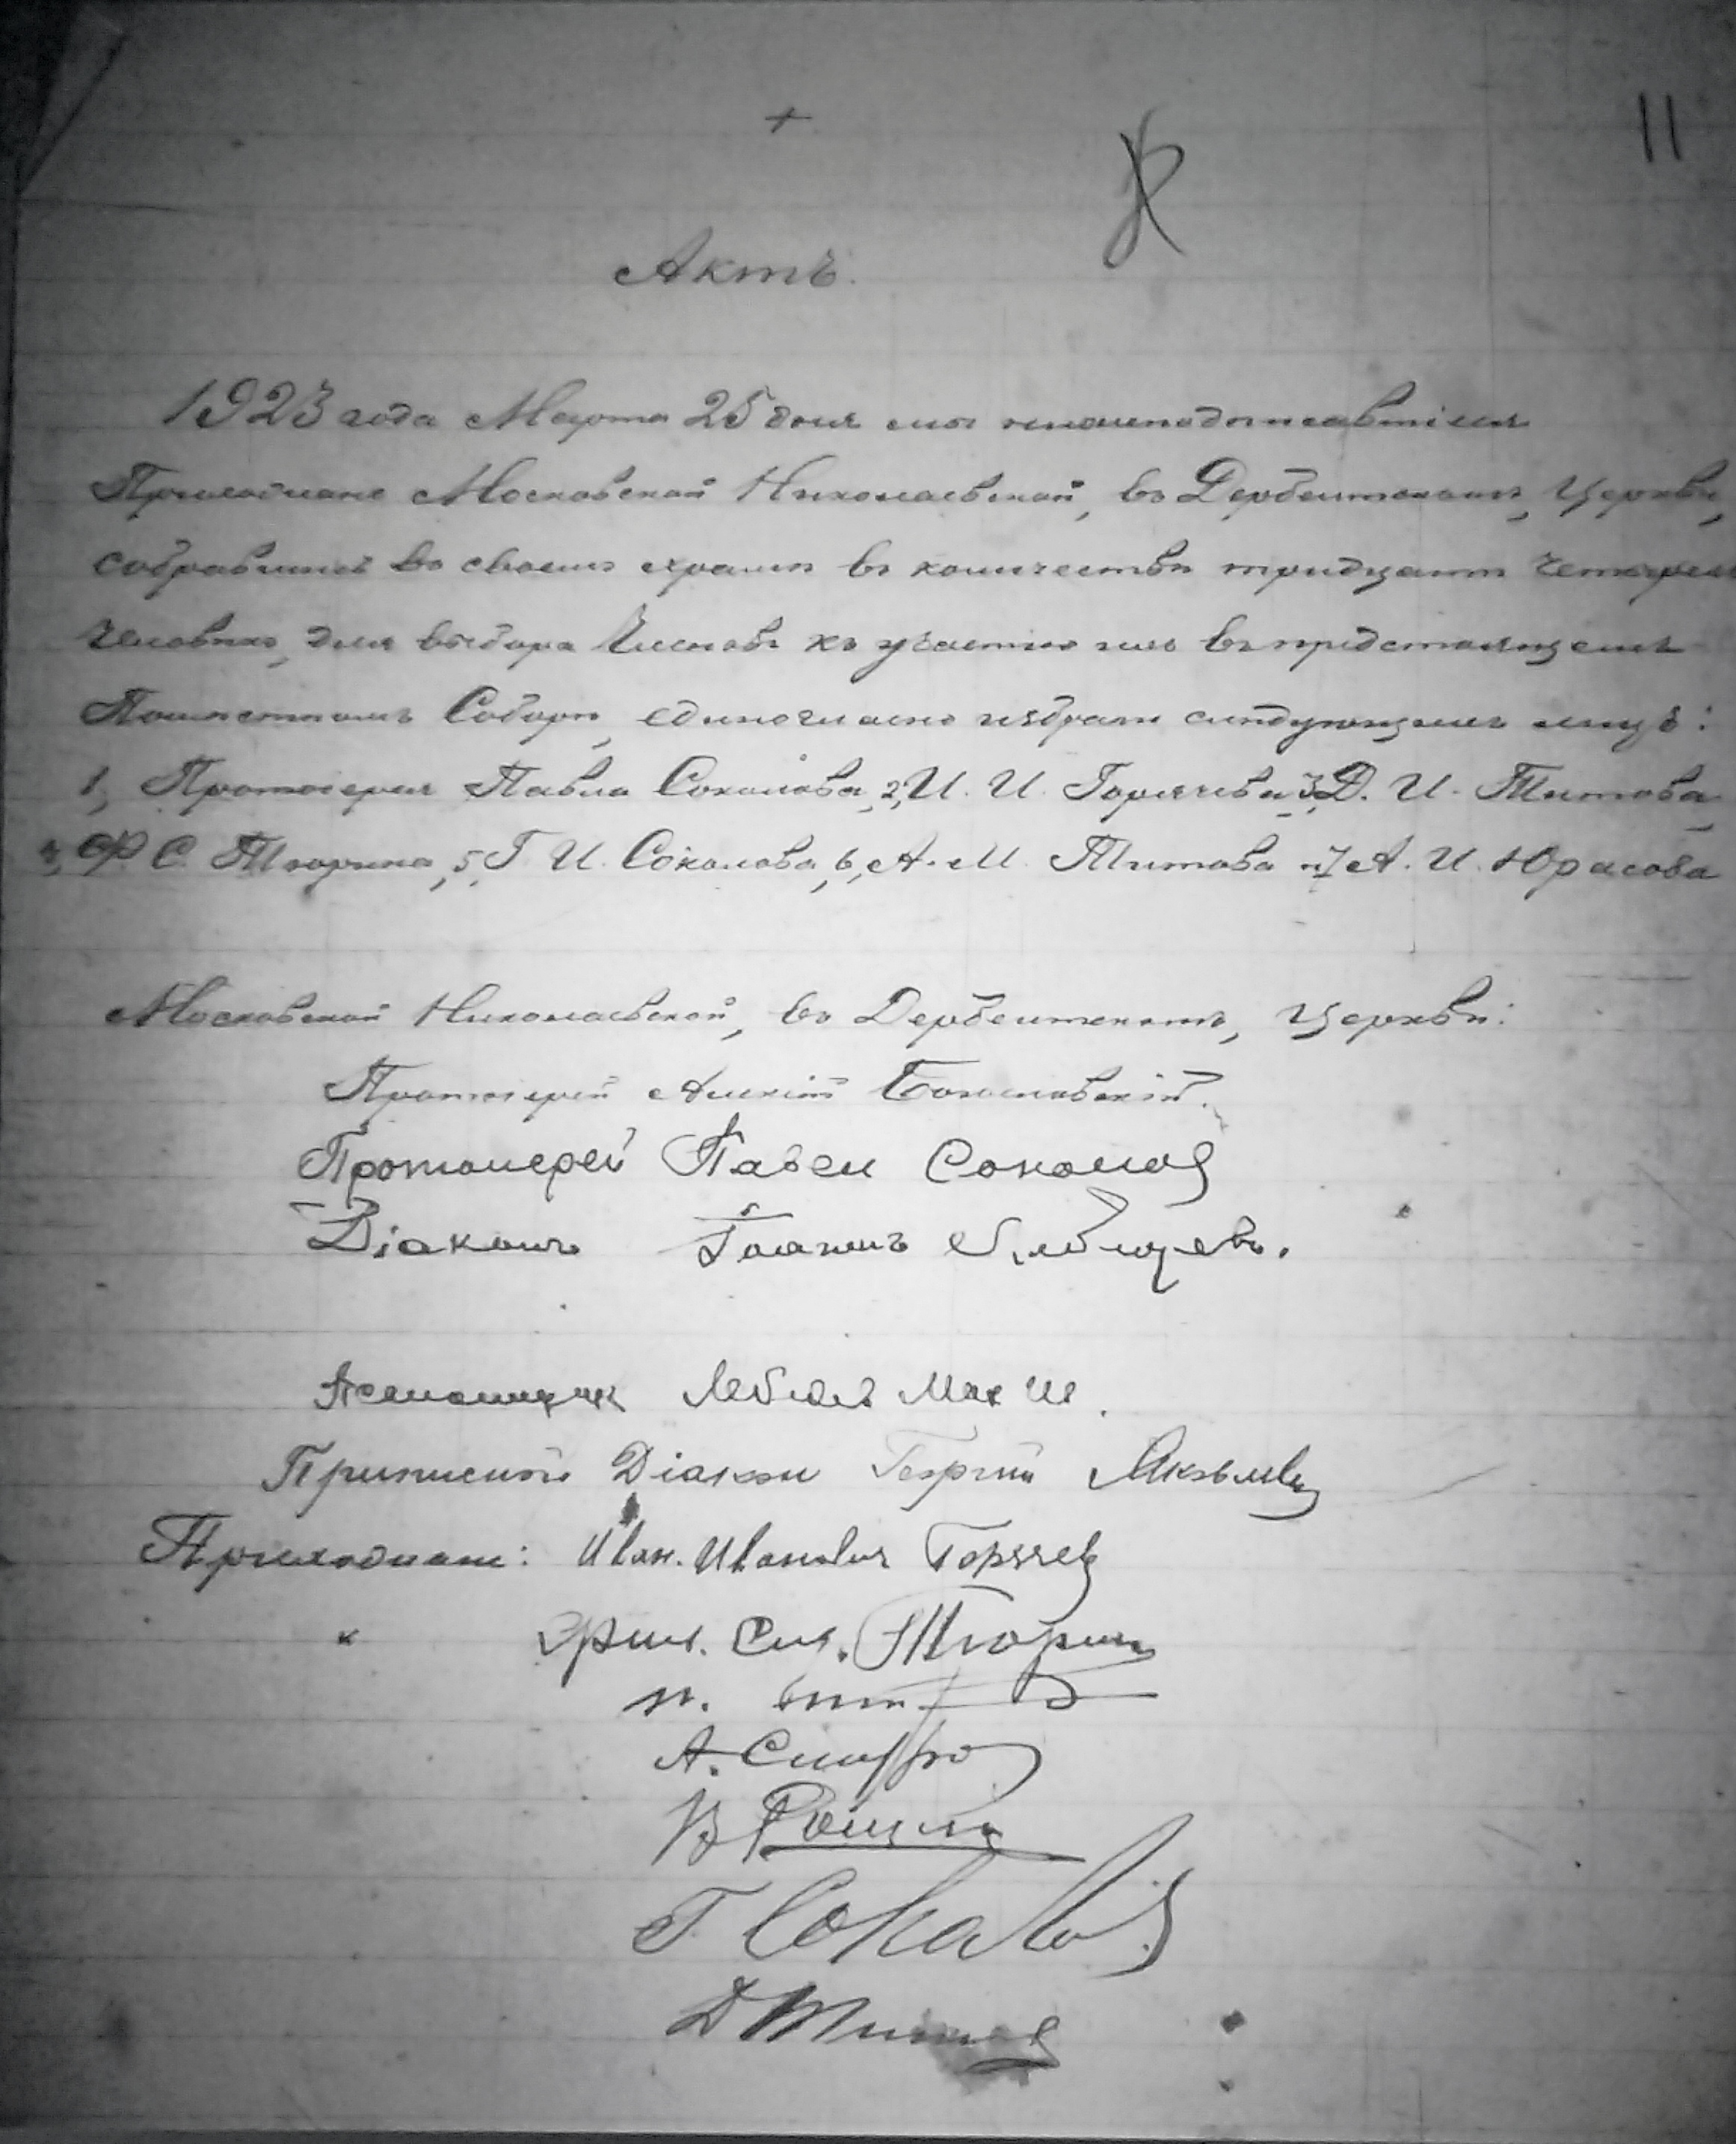 11
Актъ.
1923 года Марта 25 дня мы нижеподписавшіеся
Прихожане Московской Николаевской, въ Дербентскомъ, Церкви,
собравшись въ своемъ храмѣ въ количествѣ тридцати четырехъ
человѣкъ, для выбора Членовъ къ участію ихъ въ предстоящемъ
Помѣстномъ Соборѣ, единогласно избрали слѣдующихъ лицъ:
1, Протоіерея Павла Соколова, 2, И. И. Горячева 3, Д. И. Титова,
4, Ф. С. Тюрина, 5, Г. И. Соколова, 6, А. М. Титова и 7, А. И. Юрасова
Московской Николаевской, въ Дербентскомъ, Церкви:
Протоіерей Алексій Богословскій.
Протоиерей Павел Соколов
Діаконъ Іоаннъ
Псаломщик Лебедев
Приписной Діакон Георгий Яковлев
Прихожане: Иван. Иванович Горячев
" Фил. Сид. Тюринъ
А.
В Рощин
Г. Соколов
Д Титов